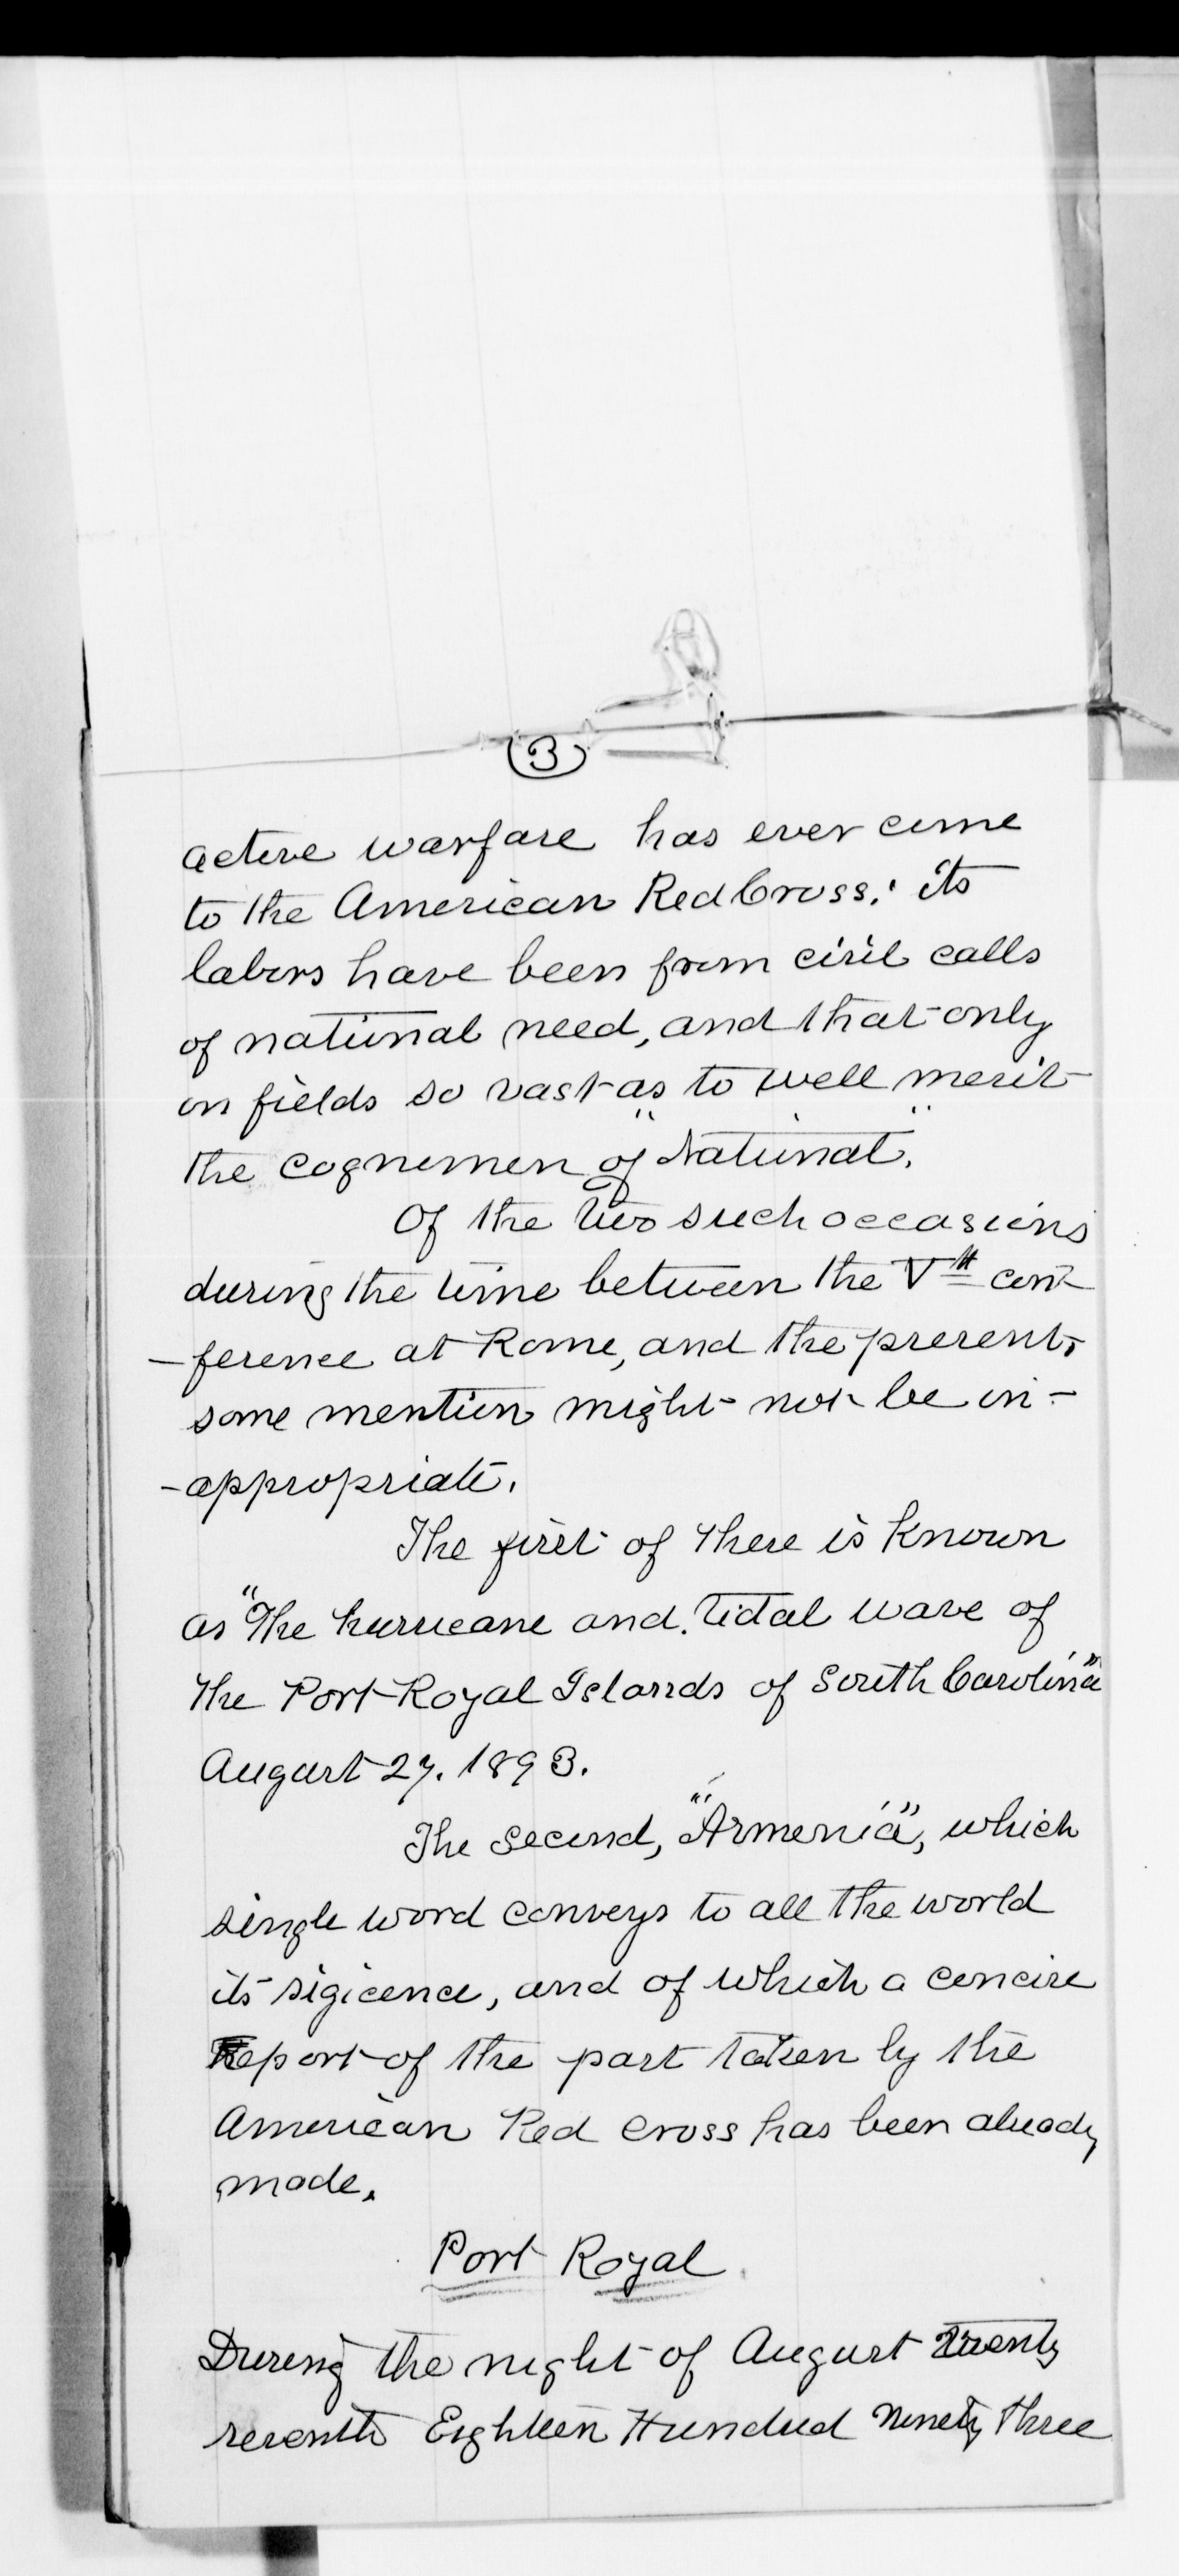 (3)
active warfare has ever come
to the American Red Cross; its
labors have been from civil calls
of national need, and that only
on fields so vast as to well merit
the cognomen of "National".
Of the two such occasions
during the time between the Vth con-
-ference at Rome, and the present,
some mention might not be in-
-appropriate.
The first of these is known
as "The hurricane and tidal wave of
the Port Royal Islands of South Carolina"
August 27. 1893.
The second, "Armenia", which
single word conveys to all the world
its sigicence, and of which a concise
Report of the part taken by the
American Red Cross has been already
made.
Port Royal
During the night of August Twenty
seventh Eighteen Hundred Ninety three